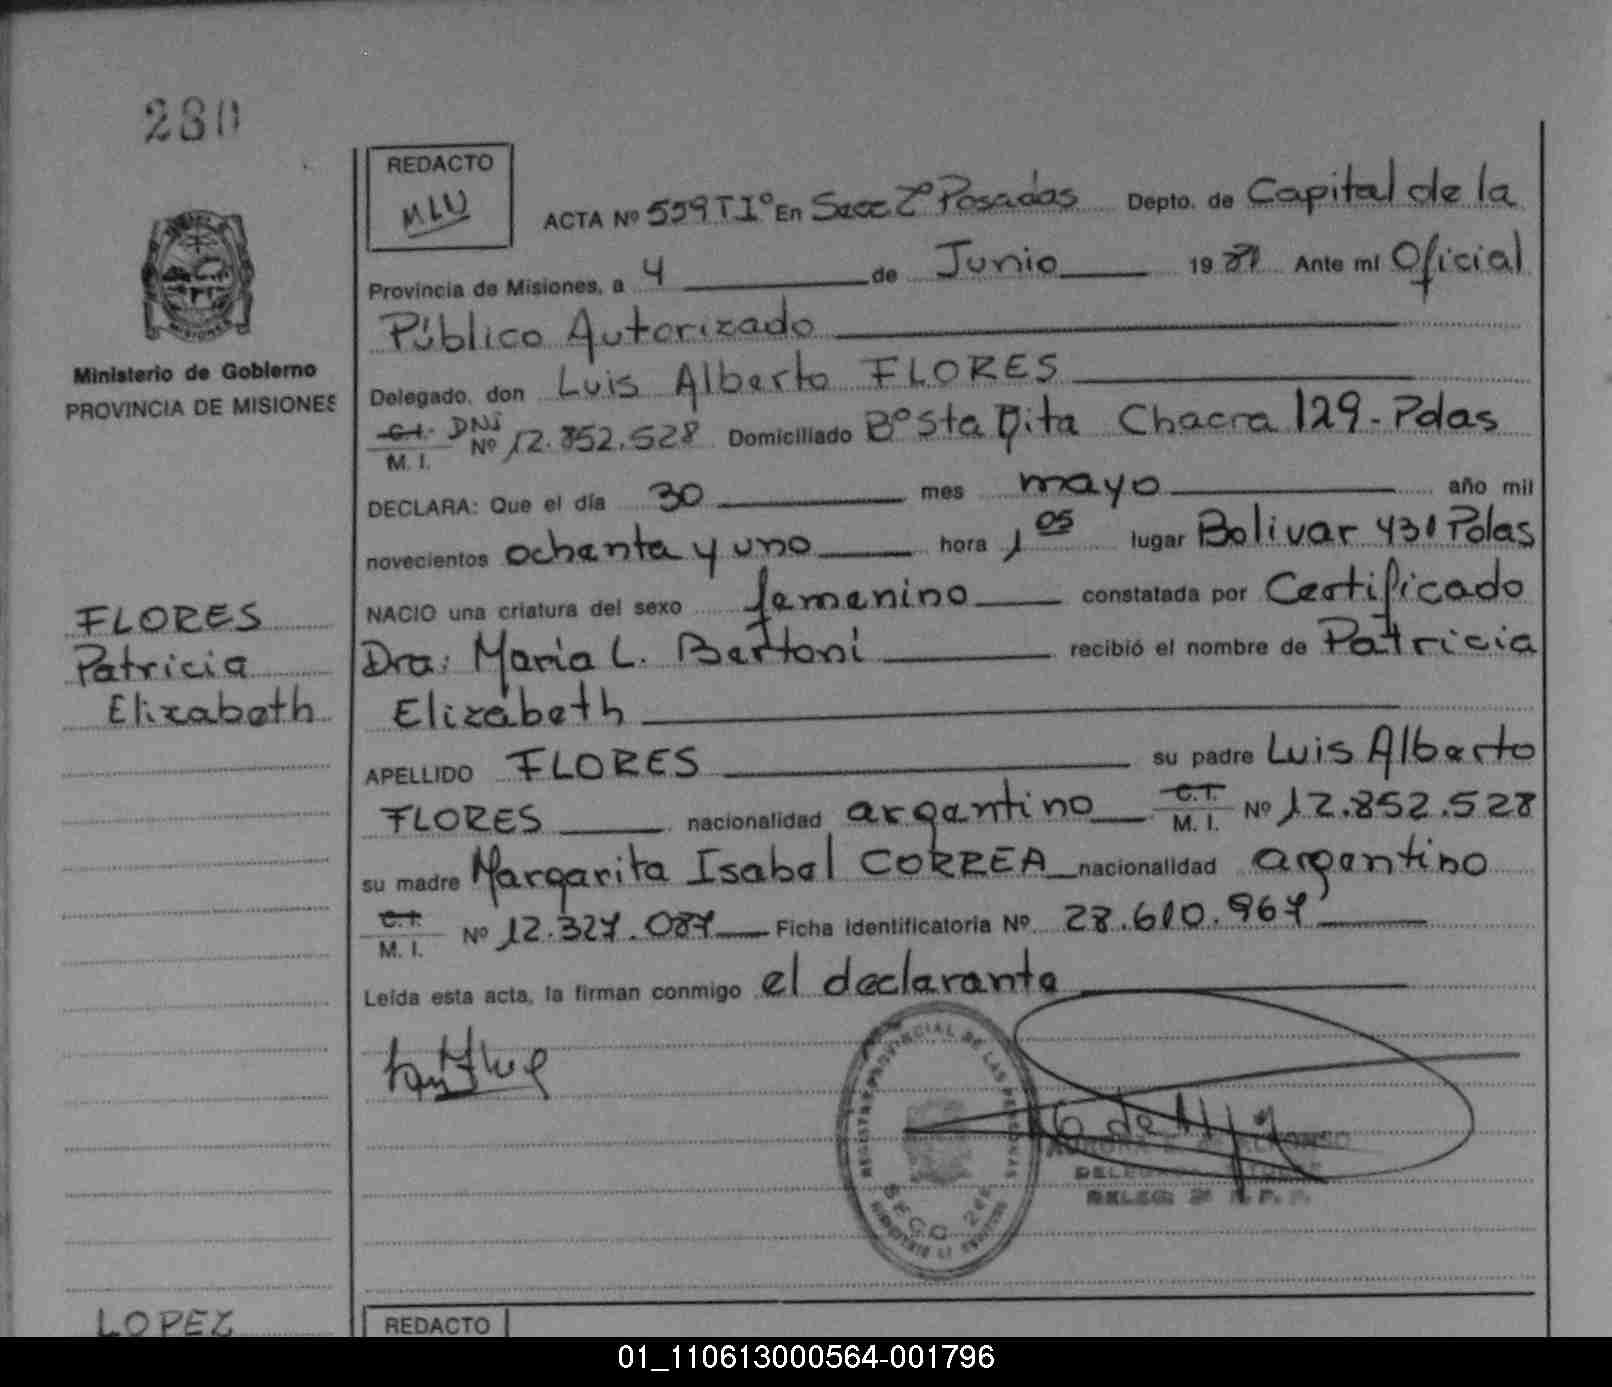 280
REDACTO
MLU
ACTA Nº 559 TIº En Secc 2º Posadas Depto. de Capital de la
Provincia de Misiones, a 4 de Junio 1981 Ante mi Oficial
Público Autorizado
Delegado, don Luis Alberto FLORES
C.I. DNI
M. I. Nº 12.852.528 Domiciliado Bº Sta Rita Chacra 129 - Pdas
DECLARA: Que el día 30 mes mayo año mil
novecientos ochenta y uno hora 1 05 lugar Bolivar 431 Pdas
NACIO una criatura del sexo femenino constatada por Certificado
Dra: María L. Bertoni recibió el nombre de Patricia
Elizabeth
APELLIDO FLORES su padre Luis Alberto
FLORES nacionalidad argentino C.I. M. I. Nº 12.852.528
su madre Margarita Isabel CORREA nacionalidad argentino
C.I. M. I. Nº 12.327.087 Ficha Identificatoria Nº 28.610.967
Leída esta acta, la firman conmigo el declarante
Ministerio de Gobierno
PROVINCIA DE MISIONES
FLORES
Patricia
Elizabeth
REGISTRO PROVINCIAL DE LAS PERSONAS
LOPEZ
REDACTO
01_110613000564-001796